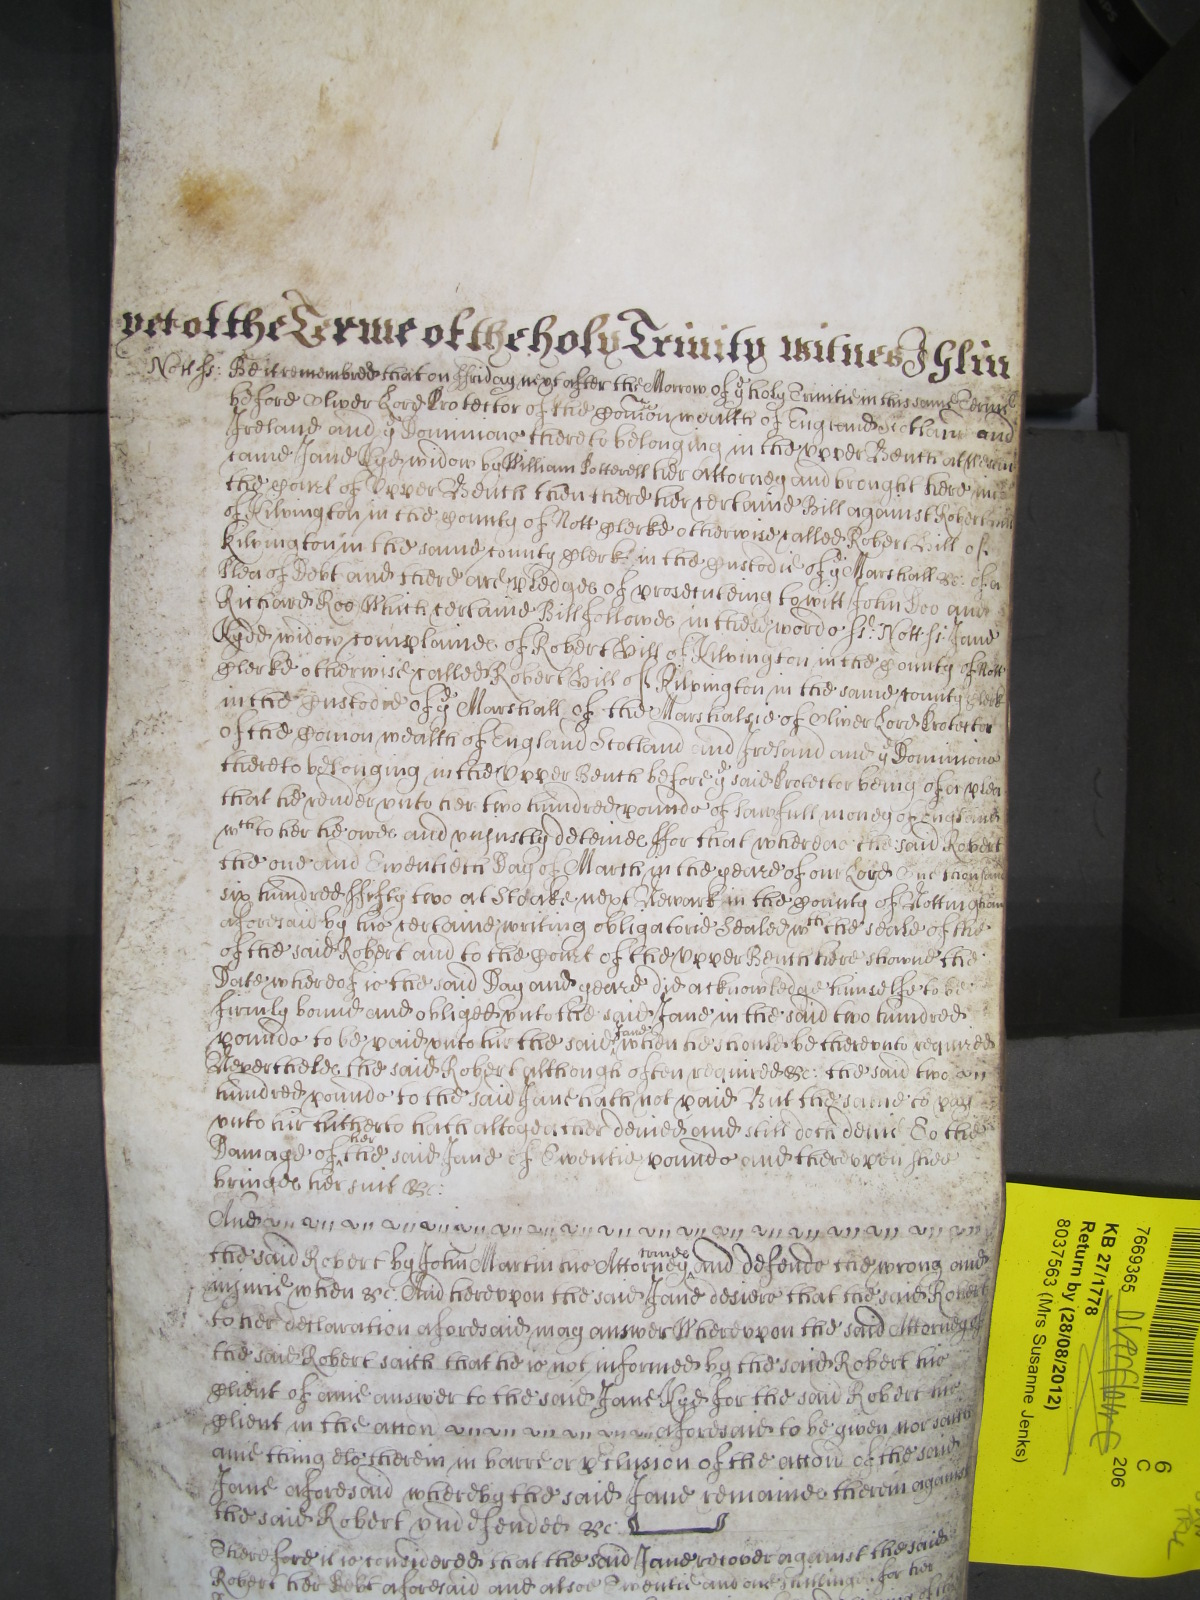 yet of the Terme of the holy Trinity witnes Jhñ
Nott ss: Be it remembred that on ffriday next after the Morrow of ye holy Trinitie in this same Terme
before Oliver Lord Protector of the Comon wealth of England Scotland and
Ireland and ye Dominions thereto belonging in the Upper Bench at
came Jane widow by William Cotterell her Attorney and brought here into
the Court of Upper Bench then there her certaine Bill against Robert
of Kilvington in the County of Nott Clerke otherwise called Robert Hill of
Kilvington in the same county Clerk in the Custodie of ye Marshall &c: of a
Plea of Debt and there are pledges of prosecuteing to witt John Doo and
Richard Roo Which certaine Bill followes in these words ss: Nott ss: Jane
widow complaines of Robert Hill of Kilvington in the County of Nott
Clerke otherwise called Robert Hill of Kilvington in the same county Clerk
in the Custodie of ye Marshall of the Marshalsie of Oliver Lord Protector
of the Comon wealth of England Scotland and Ireland and ye Dominions
thereto belonging in the Upper Bench before ye said Protector being of a plea
that he render unto her two hundred pounds of lawfull money of England
wch to her he owes and unjustly deteines ffor that whereas the said Robert
the one and Twentieth Day of March in the yeare of our Lord One thousand
six hundred ffyfty two at Stoake next Newark in the County of Nottingham
aforesaid by his certaine writing obligatorie Sealed wth the seale of the
of the said Robert and to the Court of the Upper Bench here showne the
Date whereof is the said Day and yeare did acknowledge himselfe to be
firmly bound and obliged unto the said Jane in the said two hundred
pounds to be paid unto hir the said Jane when he should be thereunto required
Neverthelesse the said Robert although often required &c: the said two
hundred pounds to the said Jane hath not paid But the same to pay
unto hir hitherto hath altogeather denied and still doth denie To the
Damage of her the said Jane of Twentie pounds and thereupon shee
bringes her suit &c:
And
the said Robert by John Martin his Attorney comes and defends the wrong and
injurie when &c: And hereupon the said Jane desiers that the said Robert
to her declaration aforesaid may answer Whereupon the said Attorney of
the said Robert saith that he is not informed by the said Robert his
Client of anie answer to the said Jane for the said Robert his
Client in the accon aforesaid to be given nor saith
anie thing els therein in barre or of the accon of the said
Jane aforesaid whereby the said Jane remaines therein against
the said Robert undefended &c:
Therefore it is considered that the said Jane recover against the said
Robert her Debt aforesaid and alsoe Twentie and one shillings for her
7669365
KB 27/1778
Return by (28/08/2012)
8037563 (Mrs Susanne Jenks)
6
C
206